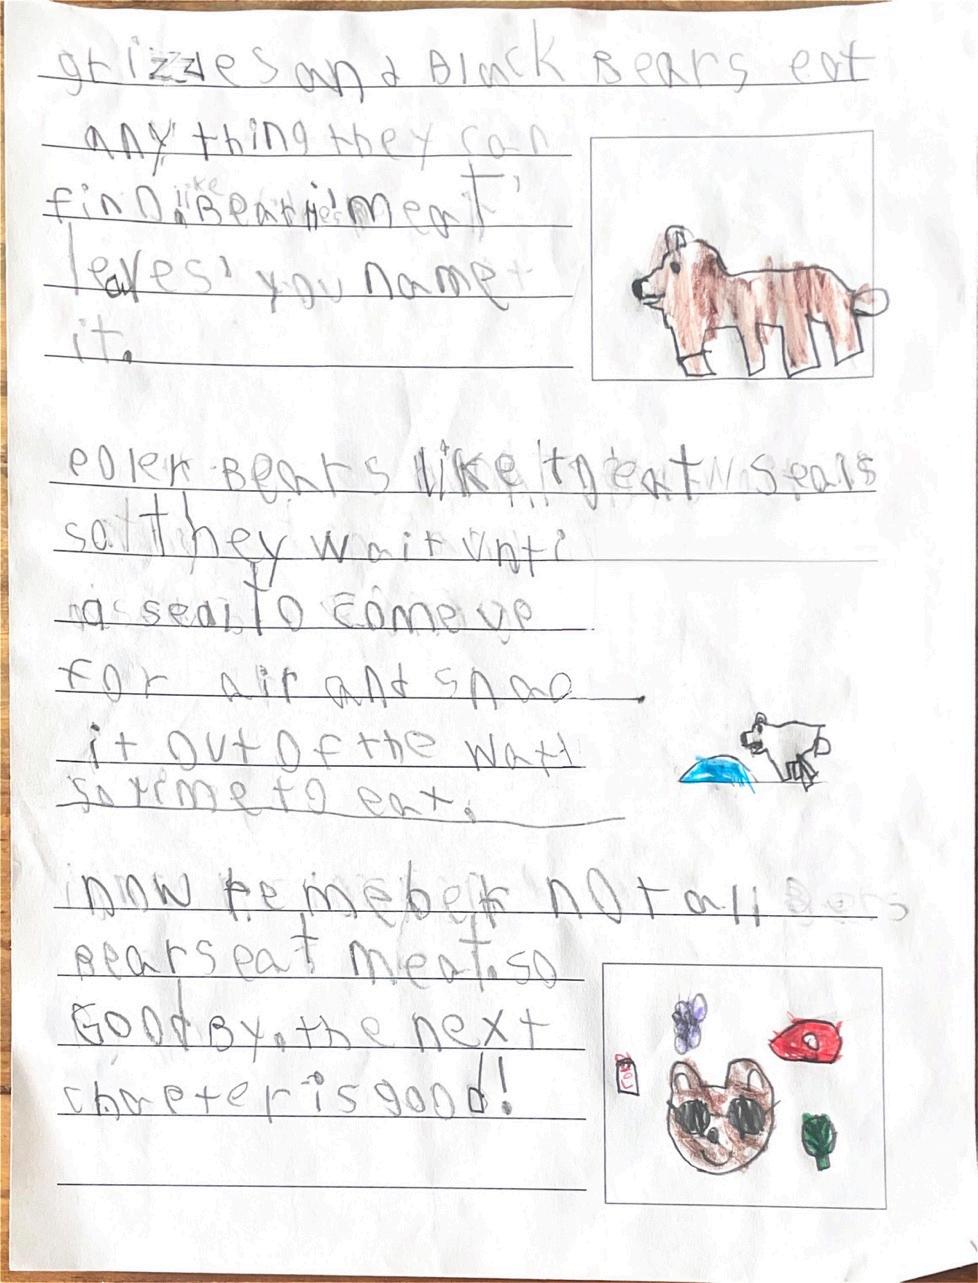 grizzles and Black Bears eat
any thing they can
find. like Bearries' meat'
leaves' you name
it.
poler Bears like to eat seals
so they wait unti
a seal to come up
for air and snap
it out of the watt
so time to eat.
now remeber not all Bers
Bears eat meat. so
Good By. the next
chapter is good!